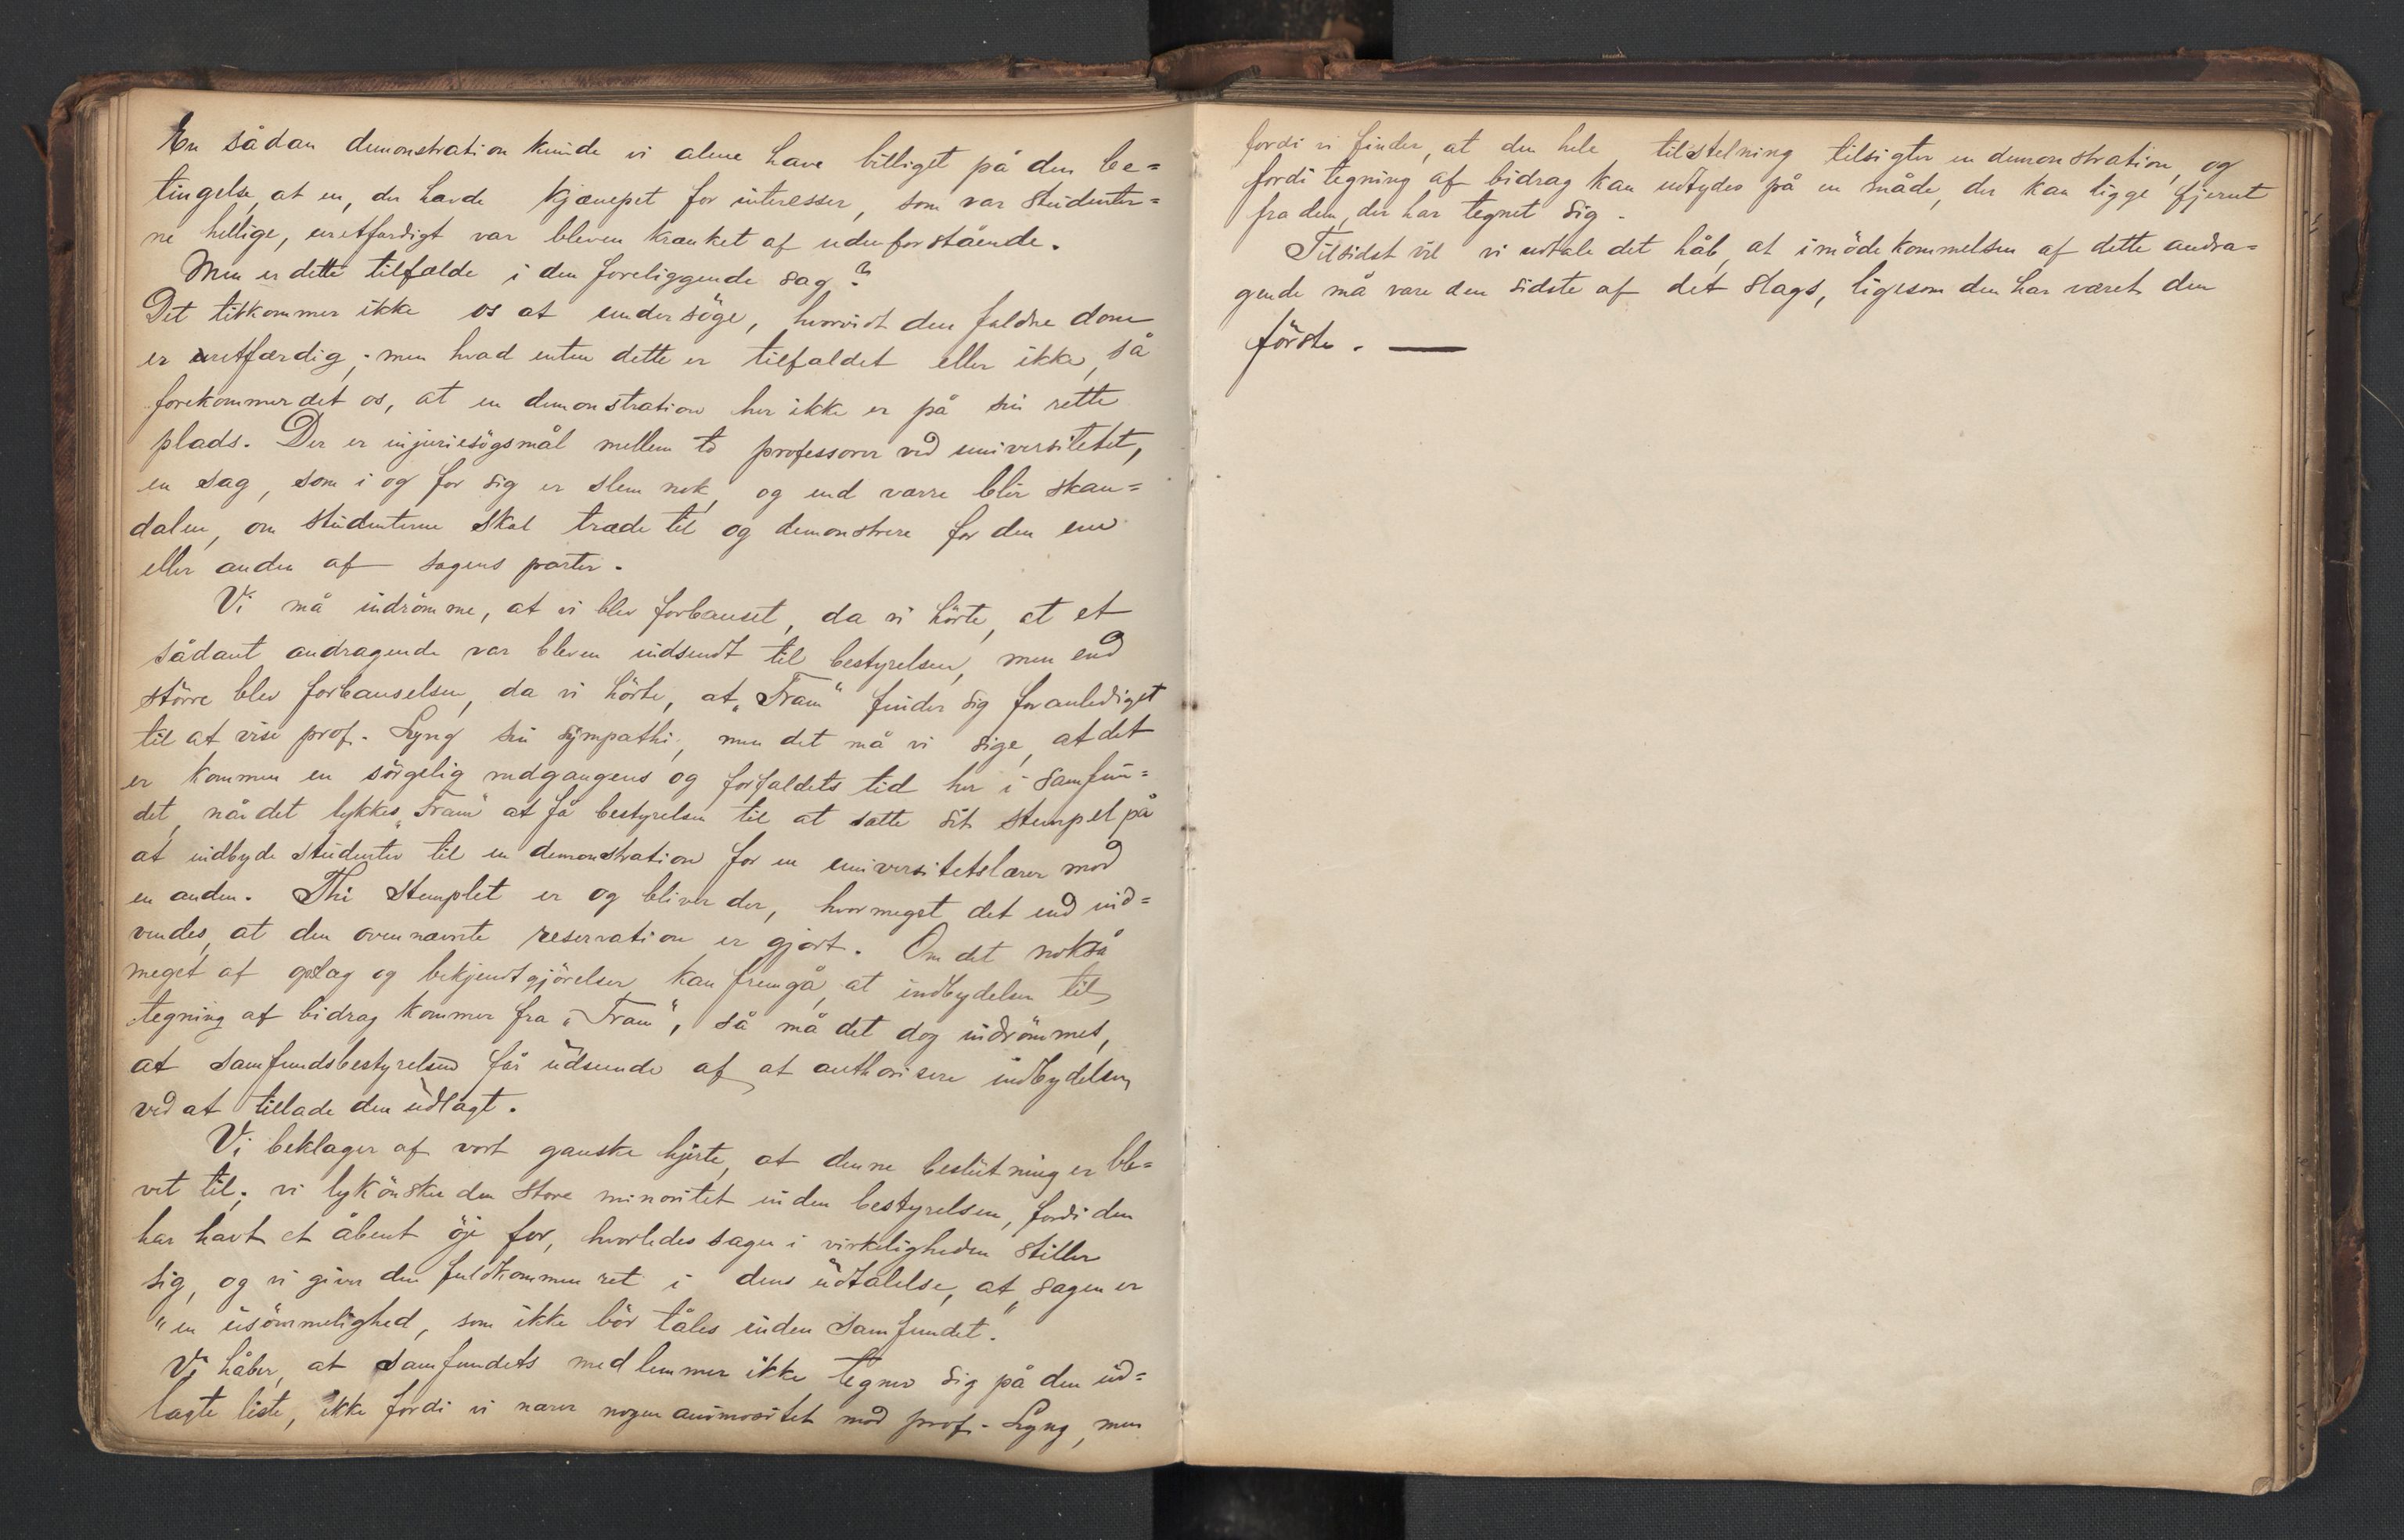 En sådan demonstration kunde vi alene have billiget på den be=
tingelse, at en, der havde kjæmpet for interesser, som var studenter=
ne hellige, uretfærdigt var bleven krænket af udenforstående.
Men er dette tilfælde i den foreliggende sag?
Det tilkommer ikke os at undersöge, hvorvidt den faldne dom
er uretfærdig; men hvad enten dette er tilfældet eller ikke, så
forekommer det os, at en demonstration her ikke er på sin rette
plads. Der er injuriesögsmål mellem to professorer ved universitetet,
en sag, som i og for sig er slem nok, og end værre blir skan=
dalen, om studenterne skal træde til og demonstrere for den ene
eller anden af sagens parter.
Vi må indrömme, at vi blev forbauset, da vi hörte, at et
sådant andragende var bleven indsendt til bestyrelsen, men end
större blev forbauselsen, da vi hörte, at „Fram" finder sig foranlediget
til at vise prof. Lyng sin sympathi; men det må vi sige, at det
er kommen en sörgelig nedgangens og forfaldets tid her i Samfun=
det, når det lykkes „Fram" at få bestyrelsen til at sætte sit stempel på
at indbyde studenter til en demonstration for en universitetslærer mod
en anden. Thi stemplet er og bliver der, hvormeget det end ind=
vendes, at den ovennævnte reservation er gjort. Om det nokså
meget af opslag og bekjendtgjörelser kan fremgå, at indbydelsen til
tegning af bidrag kommer fra „Fram", så må det dog indrömmes,
at Samfundsbestyrelsen får udseende af at authorisere indbydelsen
ved at tillade den udlagt.
Vi beklager af vort ganske hjerte, at denne beslutning er ble=
vet til; vi lykönsker den store minoritet inden bestyrelsen, fordi den
har havt et åbent öje for, hvorledes sagen i virkeligheden stiller
sig, og vi giver den fuldkommen ret i dens udtalelse, at sagen er
"en usömmelighed, som ikke bör tåles inden Samfundet."
Vi håber, at Samfundets medlemmer ikke tegner sig på den ud=
lagte liste, ikke fordi vi nærer nogen animositet mod prof. Lyng, men
fordi vi finder, at den hele tilstelning tilsigter en demonstration, og
fordi tegning af bidrag kan udtydes på en måde, der kan ligge fjernt
fra dem, der har tegnet sig.
Tilsidst vil vi udtale det håb, at imödekommelsen af dette andra=
gende må være den sidste af det slags, ligesom den har været den
förste. —